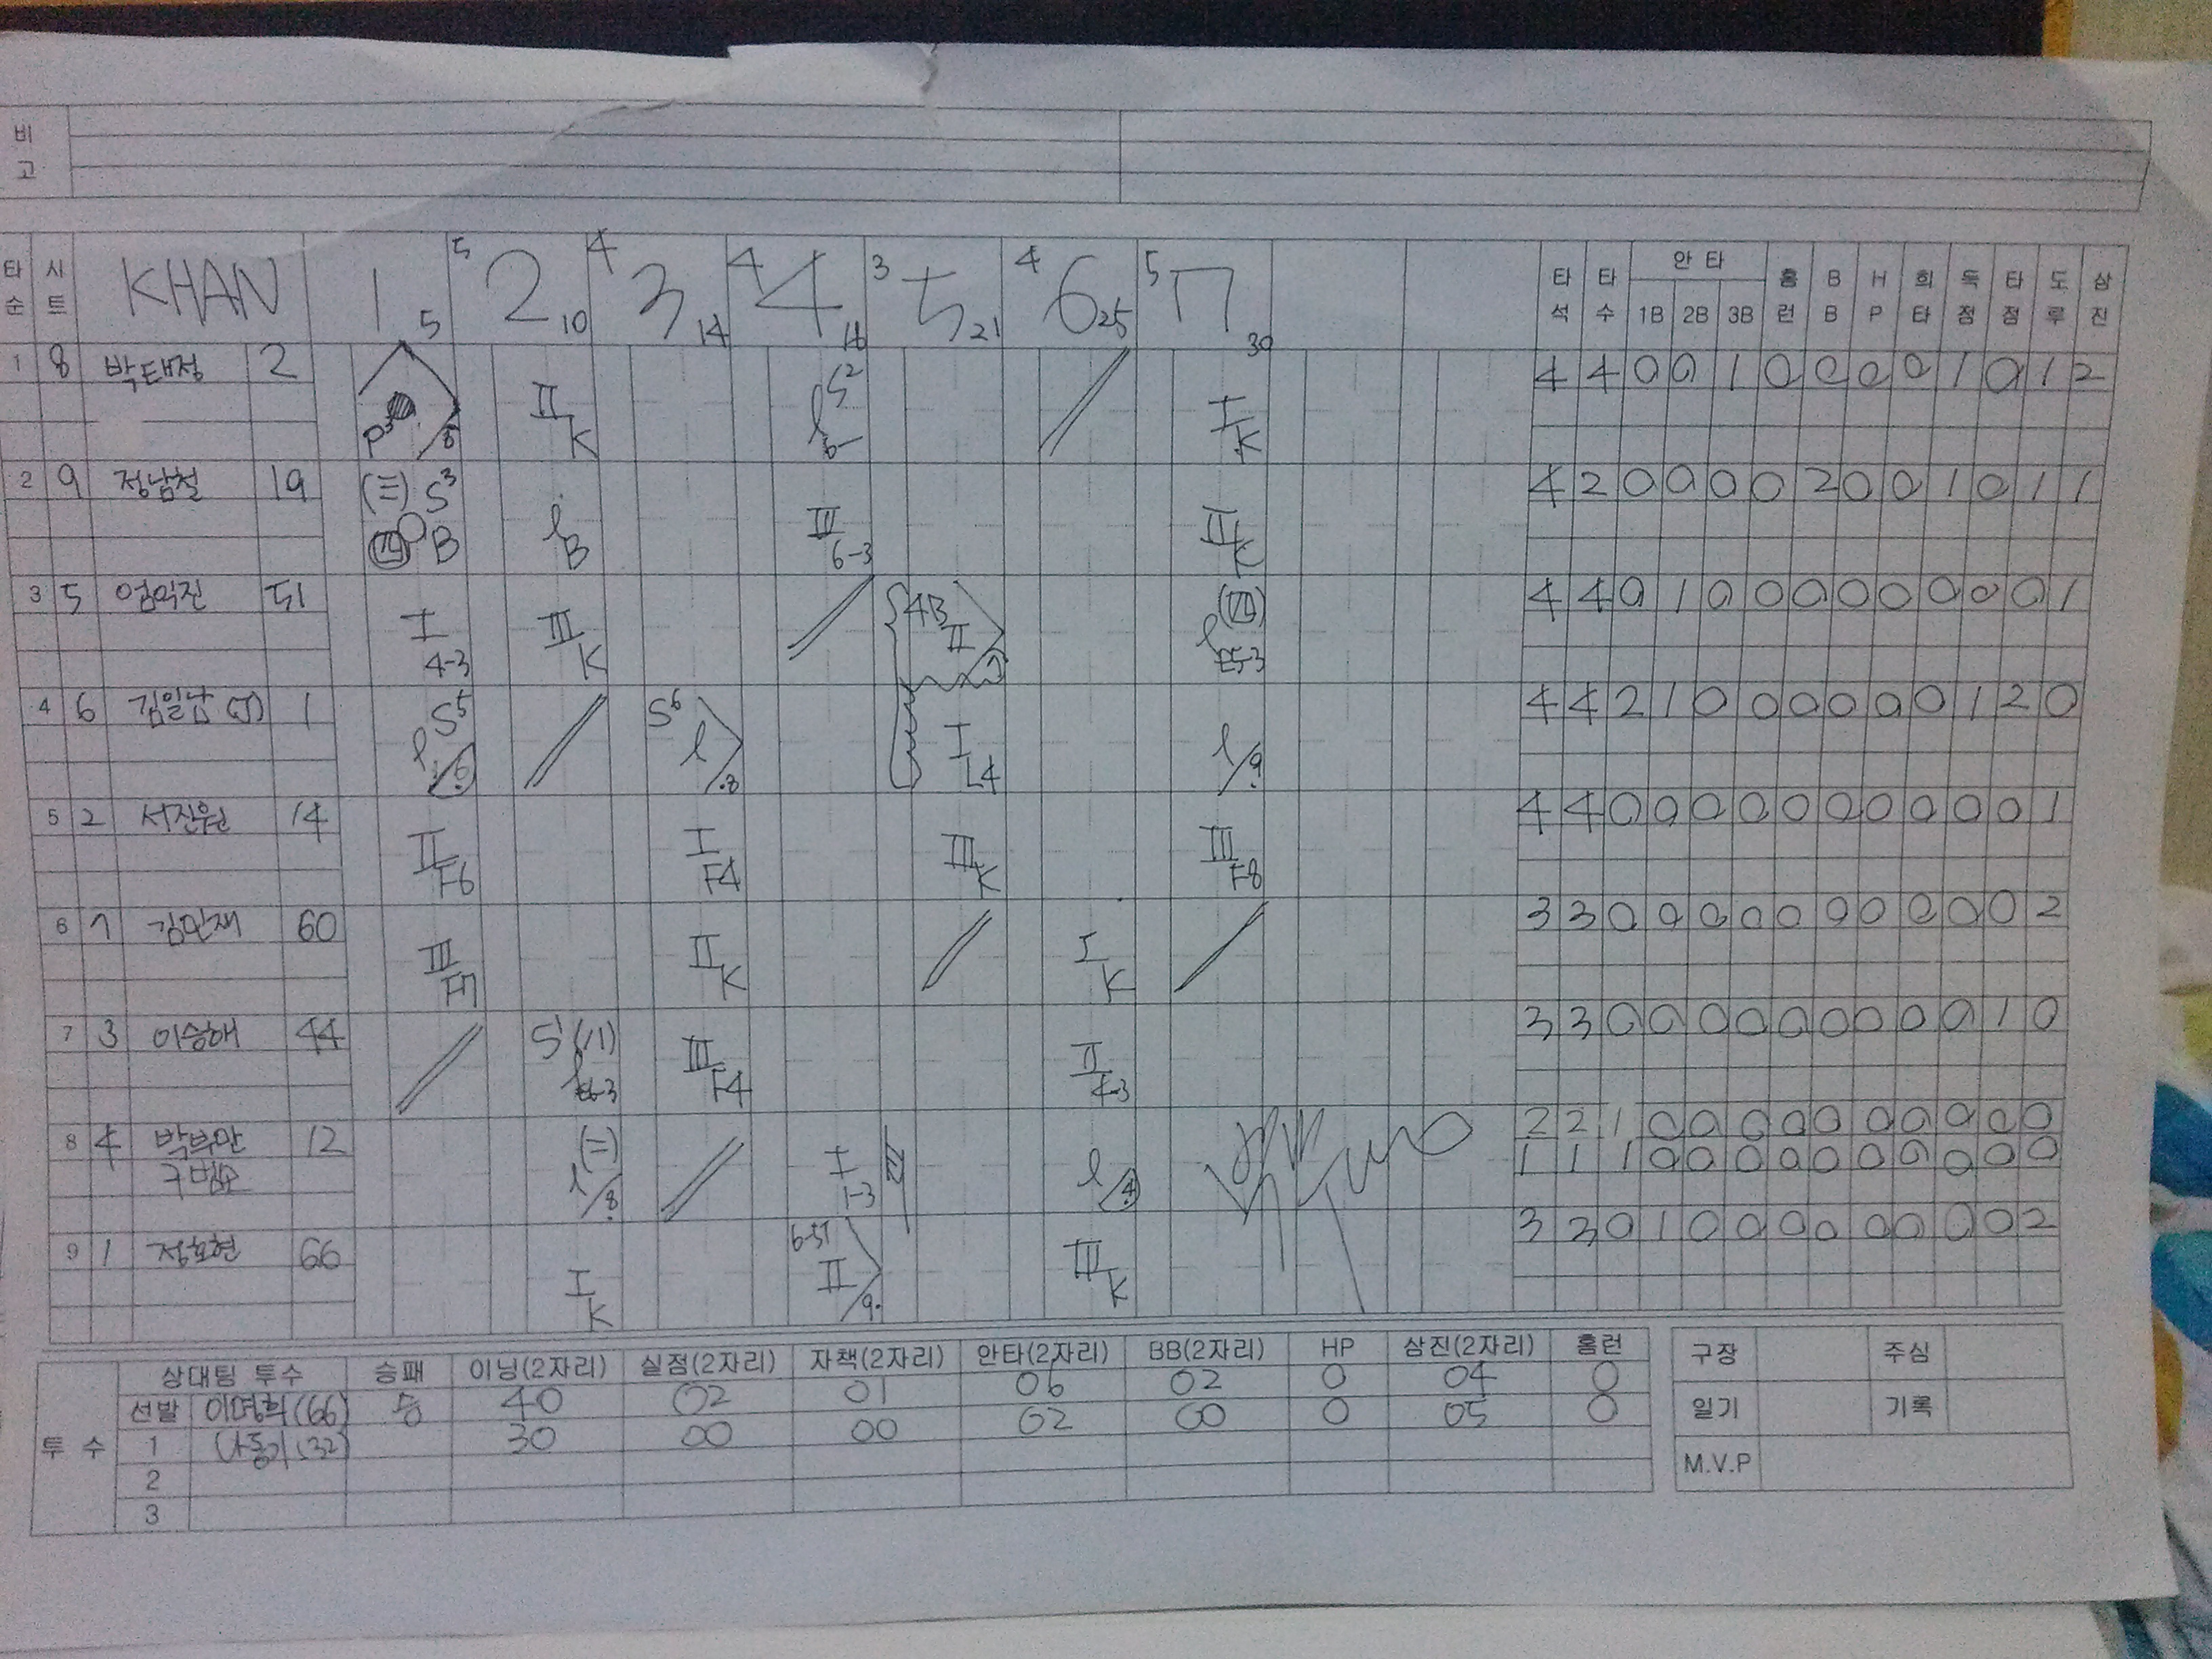 비고
타순 시트 KHAN 1 5 5 2 10 4 3 14 4 4 18 3 5 21 4 6 25 5 7 30 타석 타수 안타 1B 2B 3B 홈런 BB HP 희타 득점 타점 도루 삼진
1 8 박태정 2 II K I K 4 4 0 0 1 0 0 0 0 1 0 1 2
2 9 정남철 19 (三) S3 B l B III 6-3 II K 4 2 0 0 0 0 2 0 0 1 0 1 1
3 5 엄익진 51 I 4-3 III K 4B II (四) l E5-3 4 4 0 1 0 0 0 0 0 0 0 0 1
4 6 김일남 (J) 1 S5 l 6 S6 l 8 I L4 l 9 4 4 2 1 0 0 0 0 0 0 1 2 0
5 2 서진원 14 II F6 I F4 III K III F8 4 4 0 0 0 0 0 0 0 0 0 0 1
6 7 김민재 60 III F7 II K I K 3 3 0 0 0 0 0 0 0 0 0 0 2
7 3 이승해 44 III F4 II 4-3 3 3 0 0 0 0 0 0 0 0 0 1 0
8 4 박부만 12 (二) l 8 I 1-3 l 4 2 2 1 0 0 0 0 0 0 0 0 0 0
1 1 1 0 0 0 0 0 0 0 0 0 0
9 1 정호현 66 I K II 9 III K 3 3 0 1 0 0 0 0 0 0 0 0 2
투수 상대팀 투수 승패 이닝(2자리) 실점(2자리) 자책(2자리) 안타(2자리) BB(2자리) HP 삼진(2자리) 홈런
선발 (66) 승 40 02 01 06 02 0 04 0
1 (32) 30 00 00 02 00 0 05 0
2
3
구장 주심
일기 기록
M.V.P